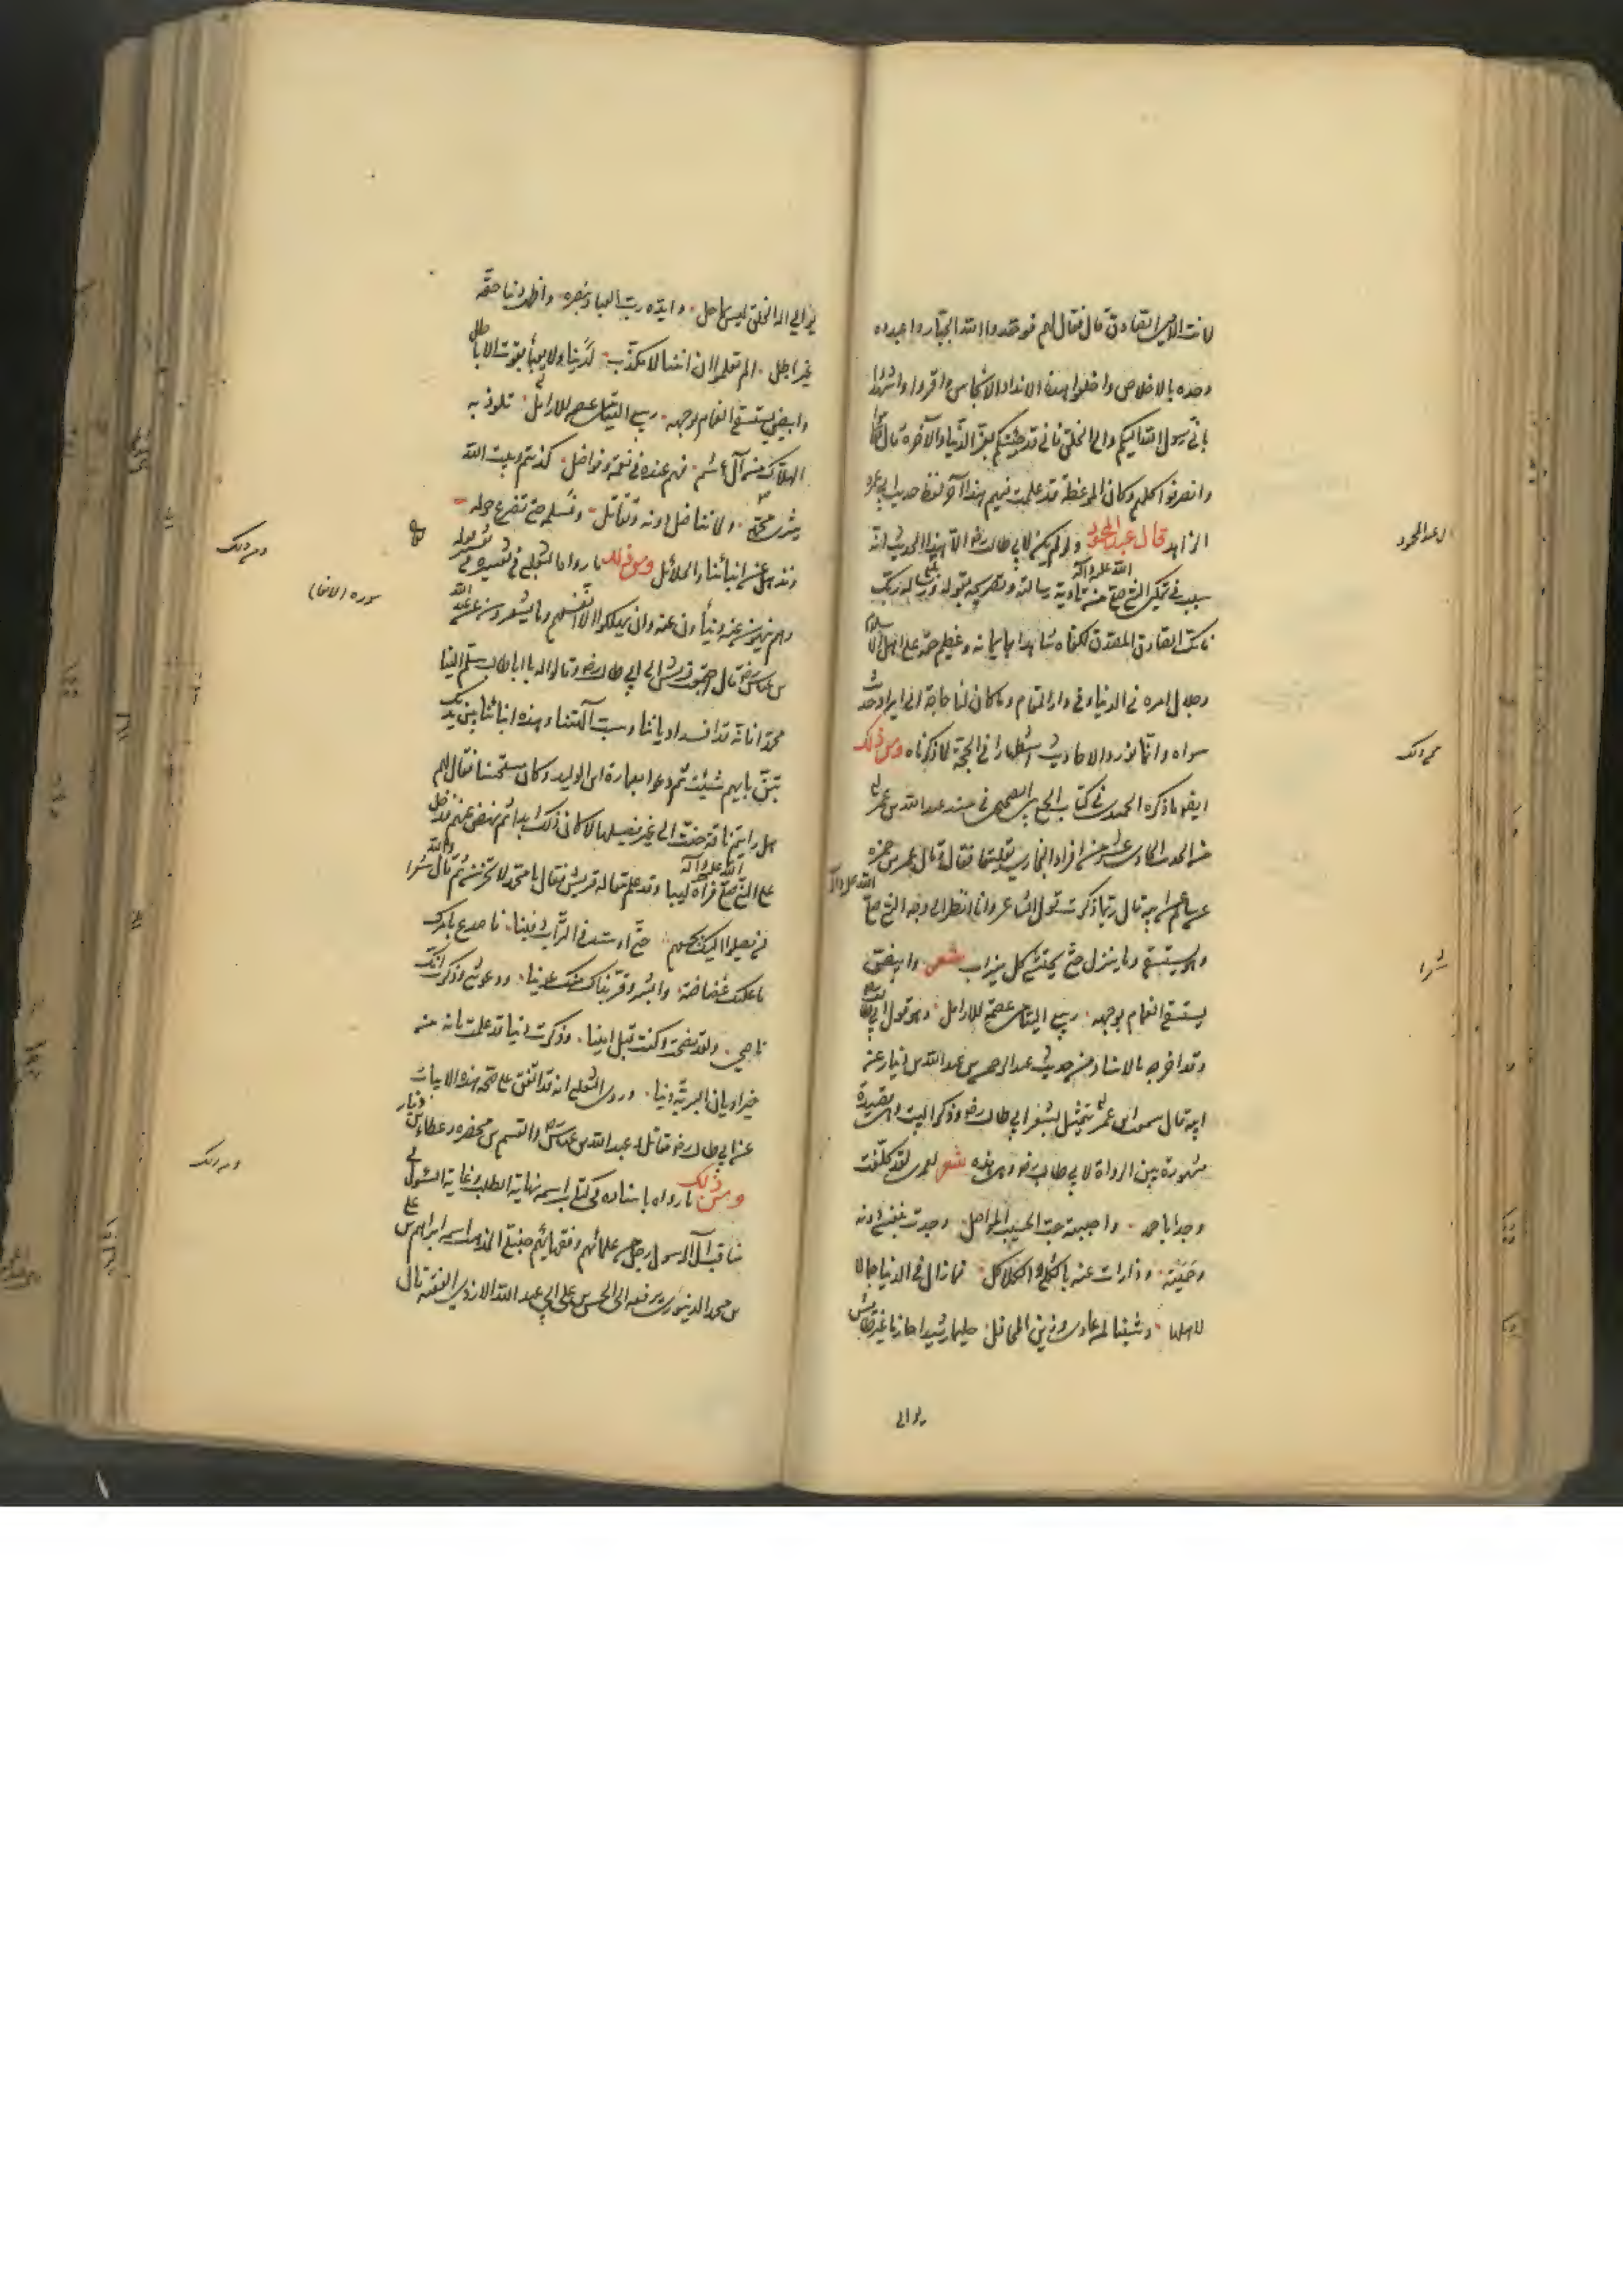 لانت الامين الصادق قال فقال لهم فوحدوا الله الجبار واعبدوه
وحده بالاخلاص واخلعوا هذه الانداد الانجاس واقروا واشهدوا
باني رسول الله اليكم والى الخلق فاني قد جئتكم بعز الدنيا والآخرة قال فقاموا
وانصرفوا كلهم وكان الموعظة قد عملت فيهم هذا آخر لفظ حديث ابي عمر
الزاهد قال عبد المحمود ولو لم يكن لابي طالب رضه الا هذا الحديث وانه
سبب في تمكين النبي صلى الله عليه وآله من تادية رسالته وتصريحه بقوله وبلغ رسالة ربك
فانك الصادق المصدق لكفاه شاهدا بايمانه وعظيم حقه على اهل الاسلام
وجلال امره في الدنيا وفي دار المقام وما كان لنا حاجة الى ايراد حديث
سواه وانما نورد الاحاديث استظهارا في الحجة لما ذكرناه ومن ذلك
ايضا ما ذكره الحميدي في كتاب الجمع بين الصحيحين في مسند عبد الله بن عمر في
من الحديث الحادي عشر من افراد البخاري تعليقا فقال وقال عمر بن حمزة
عن سالم عن ابيه قال ربما ذكرت قول الشاعر وانا انظر الى وجه النبي صلى الله عليه وآله
وهو يستسقي وما ينزل حتى يجيش كل ميزاب شعر وابيض
يستسقى الغمام بوجهه ربيع اليتامى عصمة للارامل وهو قول ابي طالب
وقد اخرجه بالاسناد من حديث عبد الرحمن بن عبد الله بن دينار عن
ابيه قال سمعت ابن عمر يتمثل بشعر ابي طالب رضه وذكر البيت وهي قصيدة
مشهورة بين الرواة لابي طالب رضه وهي هذه شعر لعمري لقد كلفت
وجدا باحمد واحببته حب الحبيب المواصل وجدت بنفسي دونه
وحميته ودارات عنه بالذرى والكلاكل فما زال في الدنيا جمالا
لاهلها وشينا لمن عادى وزين المحافل حليما رشيدا حازما غير طائش
يوالي
ال عبد المحمود
شعرا
يوالي اله الخلق ليس بماحل وايده رب العباد بنصره واظهر دينا حقه
غير باطل الم تعلموا ان ابننا لا مكذب لدينا ولا يعبأ بقول الاباطل
وابيض يستسقى الغمام بوجهه ربيع اليتامى عصمة للارامل تلوذ به
الهلاك من آل هاشم فهم عنده في نعمة وفواضل كذبتم وبيت الله
نبزى محمد ولما نناضل دونه ونقاتل ونسلمه حتى نصرع حوله
ونذهل عن ابنائنا والحلائل ومن ذلك ما رواه الثعلبي في تفسيره في تفسير قوله
وهم ينهون عنه وينأون عنه وان يهلكون الا انفسهم وما يشعرون عن عبد الله
بن عباس رضه قال اجتمعت قريش الى ابي طالب رضه وقالوا له يا ابا طالب سلم الينا
محمدا فانه قد افسد ادياننا وسب آلهتنا وهذه ابنائنا بين يديك
تبن بايهم شئت ثم دعوا بعمارة بن الوليد وكان مستحسنا فقال لهم
هل رايتم ناقة حنت الى غير فصيلها لا كان ذلك ابدا ثم نهض عنهم فدخل
على النبي صلى الله عليه وآله فراه كئيبا وقد علم مقالة قريش فقال يا محمد لا تحزن ثم قال شعرا والله
لن يصلوا اليك بجمعهم حتى اوسد في التراب دفينا فاصدع بامرك
ما عليك غضاضة وابشر وقر بذاك منك عيونا ودعوتني وذكرت انك
ناصحي ولقد نصحت وكنت قبل امينا وذكرت دينا قد علمت بانه من
خير اديان البرية دينا وروى الثعلبي انه قد اتفق على صحة هذه الابيات
عن ابي طالب رضه مقاتل وعبد الله بن عباس والقسم بن محيصره وعطاء بن دينار
ومن ذلك ما رواه باسناده في كتاب اسمه نهاية الطلب وغاية السؤل في
مناقب آل الرسول رجل من علمائهم وفقهائهم حنبلي المذهب اسمه ابراهيم بن علي
بن محمد الدينوري يرفعه الى الحسن بن علي ابي عبد الله الازدي الفقيه قال
ومن ذلك
سوره (الانعام)
ومن ذلك